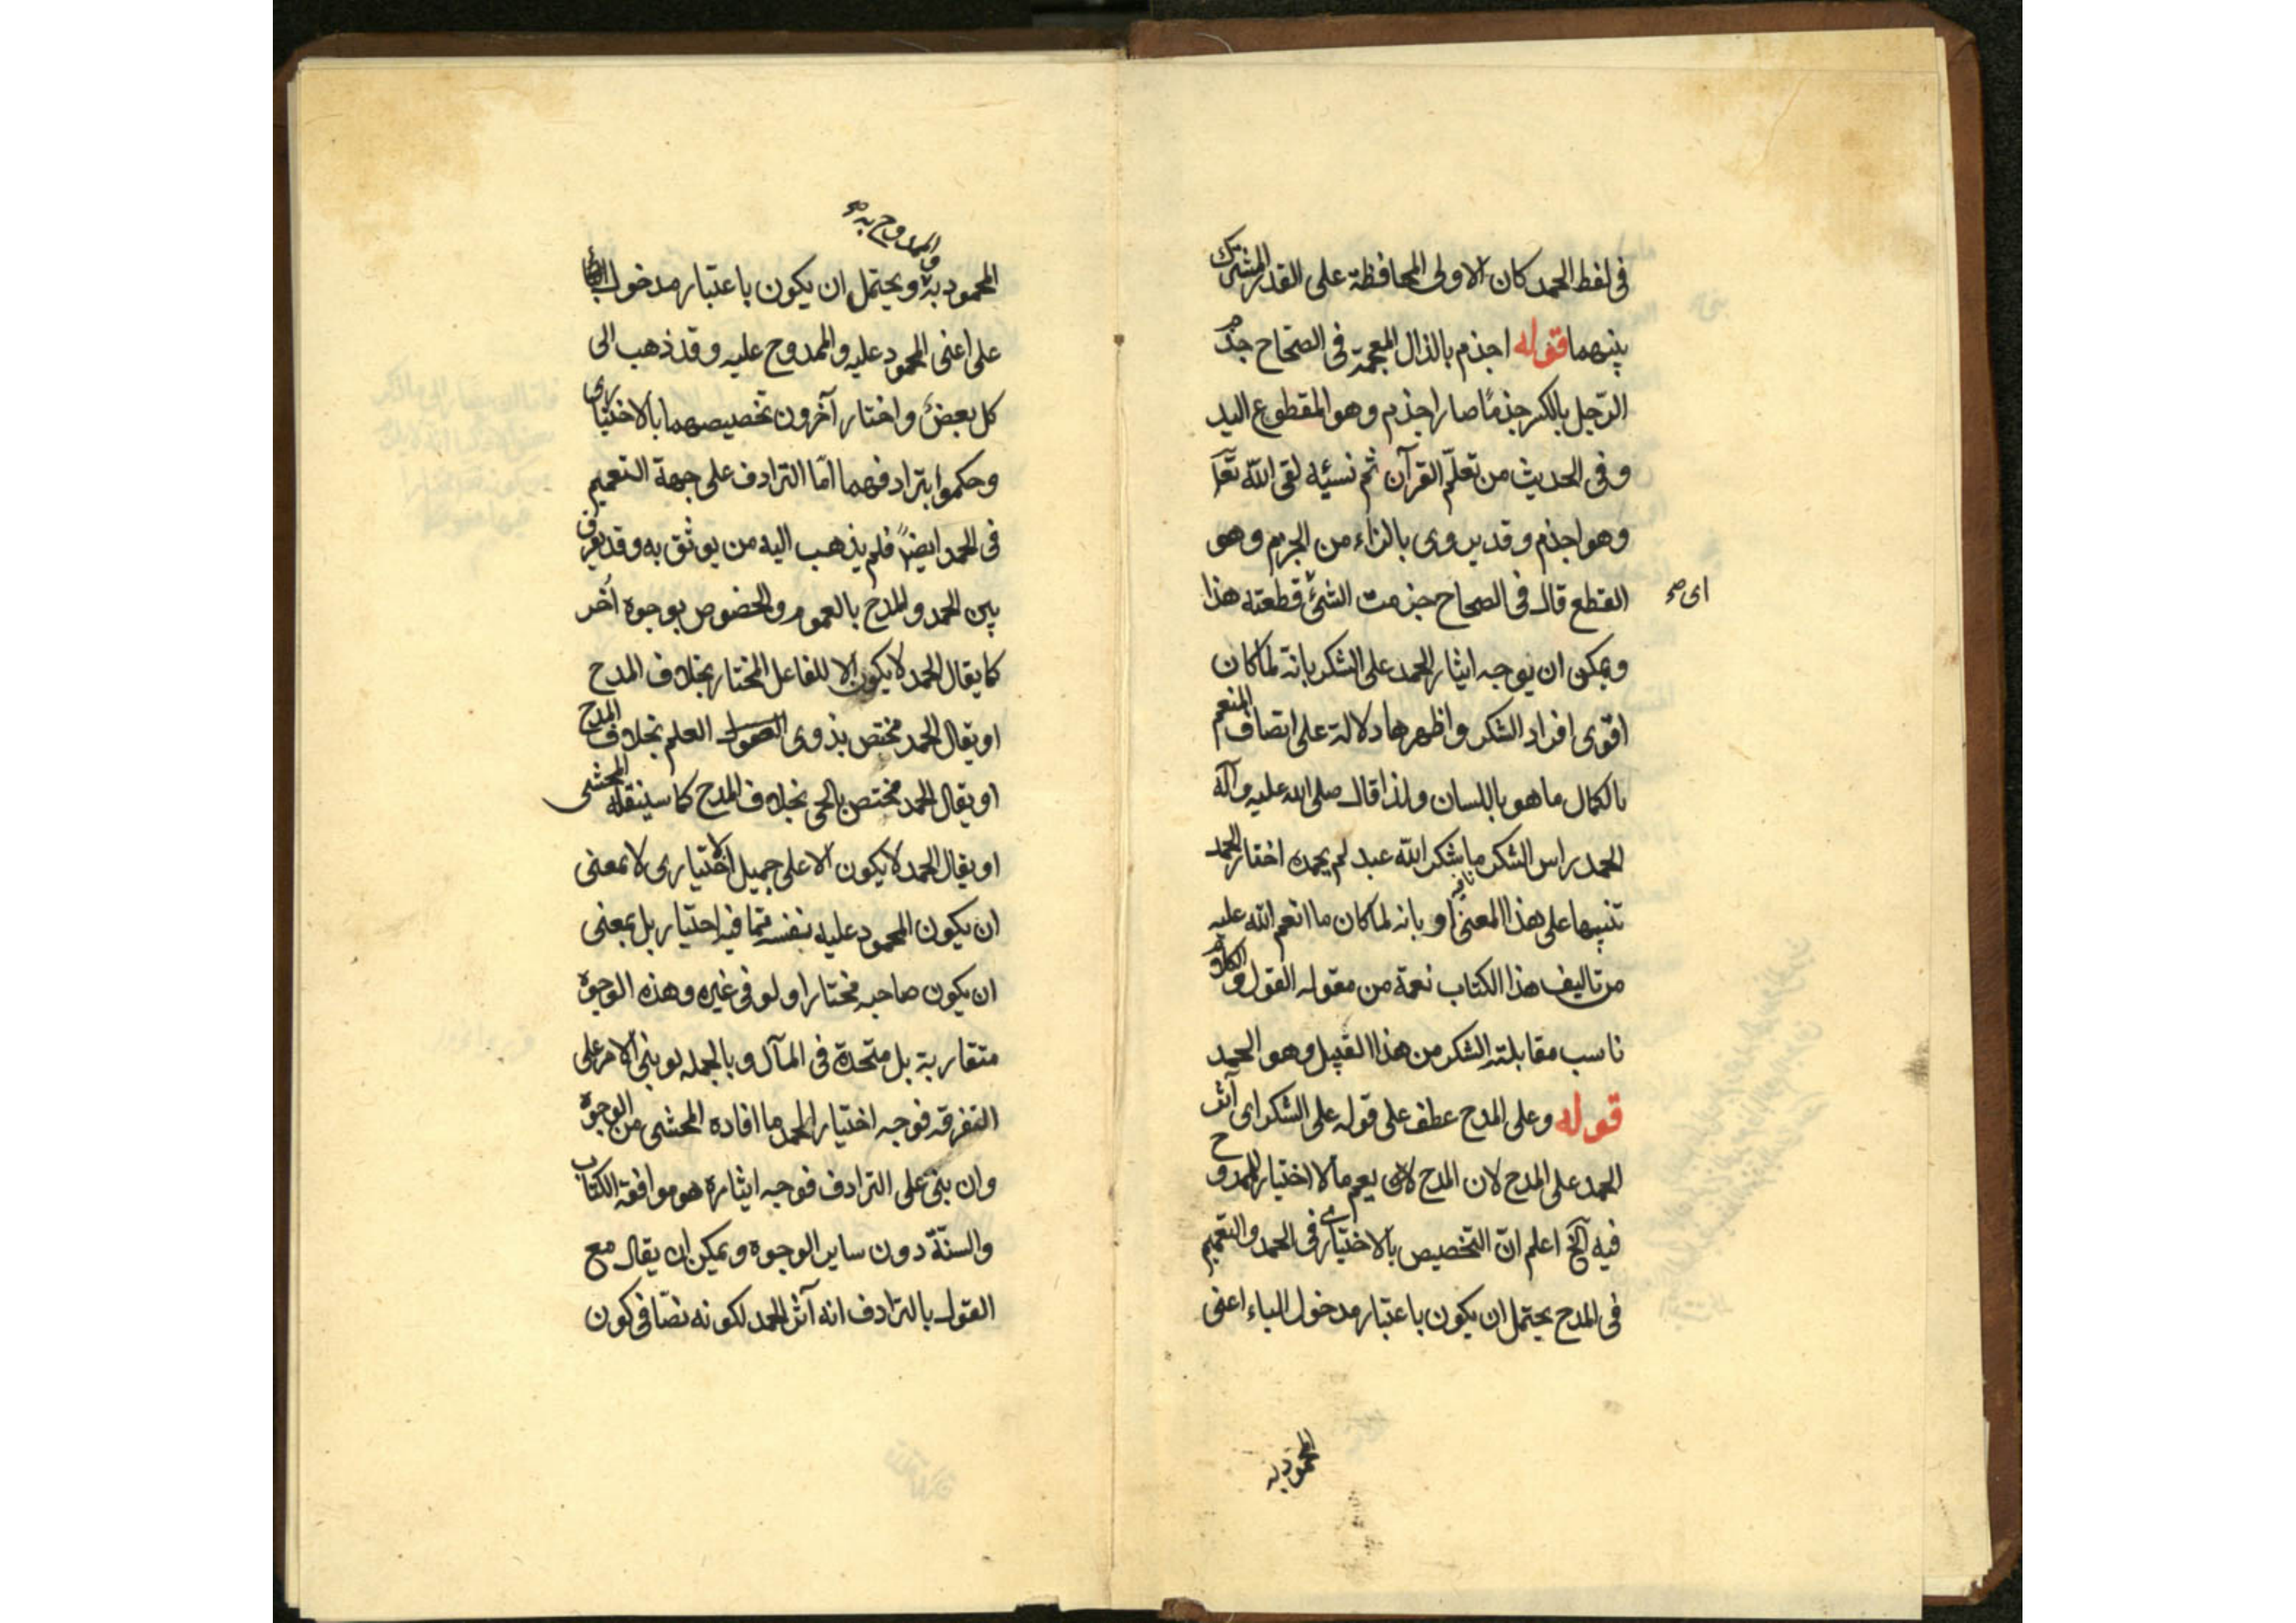 في لفظ الحمد كان الاولى المحافظة على القدر المشترك
بينهما قوله اجذم بالذال المعجمة في الصحاح جذم
الرّجل بالكسر جذمًا صار اجذم وهو المقطوع اليد
وفي الحديث من تعلّم القرآن ثم نسيه لقى اللّه تعا
وهو اجذم وقد يروى بالزاء من الجزم وهو
القطع قال في الصحاح جزمت الشئ قطعته هذا
اى صح
ويمكن ان يوجه ايثار الحمد على الشكر بانّه لما كان
اقوى افراد الشكر واظهرها دلالة على اتصاف المنعم
بالكمال ما هو باللسان ولذا قال صلى الله عليه وآله
الحمد راس الشكر ما شكر اللّه عبد لم يحمده اختار الحمد
تنبيها على هذا المعنى او بانه لما كان ما انعم اللّه عليه
من تاليف هذا الكتاب نعمة من مقوله القول والكلام
ناسب مقابلته الشكر من هذا القبيل وهو الحمد
قوله وعلى المدح عطف على قوله على الشكر اى آثر
الحمد على المدح لان المدح يعم ما لا اختيار للممدوح
فيه آلخ اعلم انّ التخصيص بالاختيارى في الحمد والتعميم
في المدح يحتمل ان يكون باعتبار مدخول الباء اعنى
المحمود به
والممدوح به صح
المحمود به ويحتمل ان يكون باعتبار مدخول
على اعنى المحمود عليه والممدوح عليه وقد ذهب الى
كل بعض واختار آخرون تخصيصهما بالاختيارى
وحكموا بترادفهما امّا الترادف على جهة التعميم
في الحمد ايضاً فلم يذهب اليه من يوثق به وقد يفرق
بين الحمد والمدح بالعموم والخصوص بوجوه اُخر
كما يقال الحمد لا يكون الا للفاعل المختار بخلاف المدح
او يقال الحمد مختص بذوى العلم بخلاف المدح
او يقال الحمد مختص بالحى بخلاف المدح كما سينقله المحشى
او يقال الحمد لا يكون الا على جميل اختيارى لا بمعنى
ان يكون المحمود عليه بنفسه ممّا فيه اختيار بل بمعنى
ان يكون صاحبه مختارا ولو في غيره وهذه الوجوه
متقاربة بل متحدة في المآل وبالجمله لو بنى الامر على
التفرقه فوجه اختيار الحمد ما افاده المحشى من الوجوه
وان بنى على الترادف فوجه ايثاره هو موافقة الكتاب
والسنّة دون ساير الوجوه ويمكن ان يقال مع
القول بالترادف انه آثر الحمد لكونه نصّا في كون